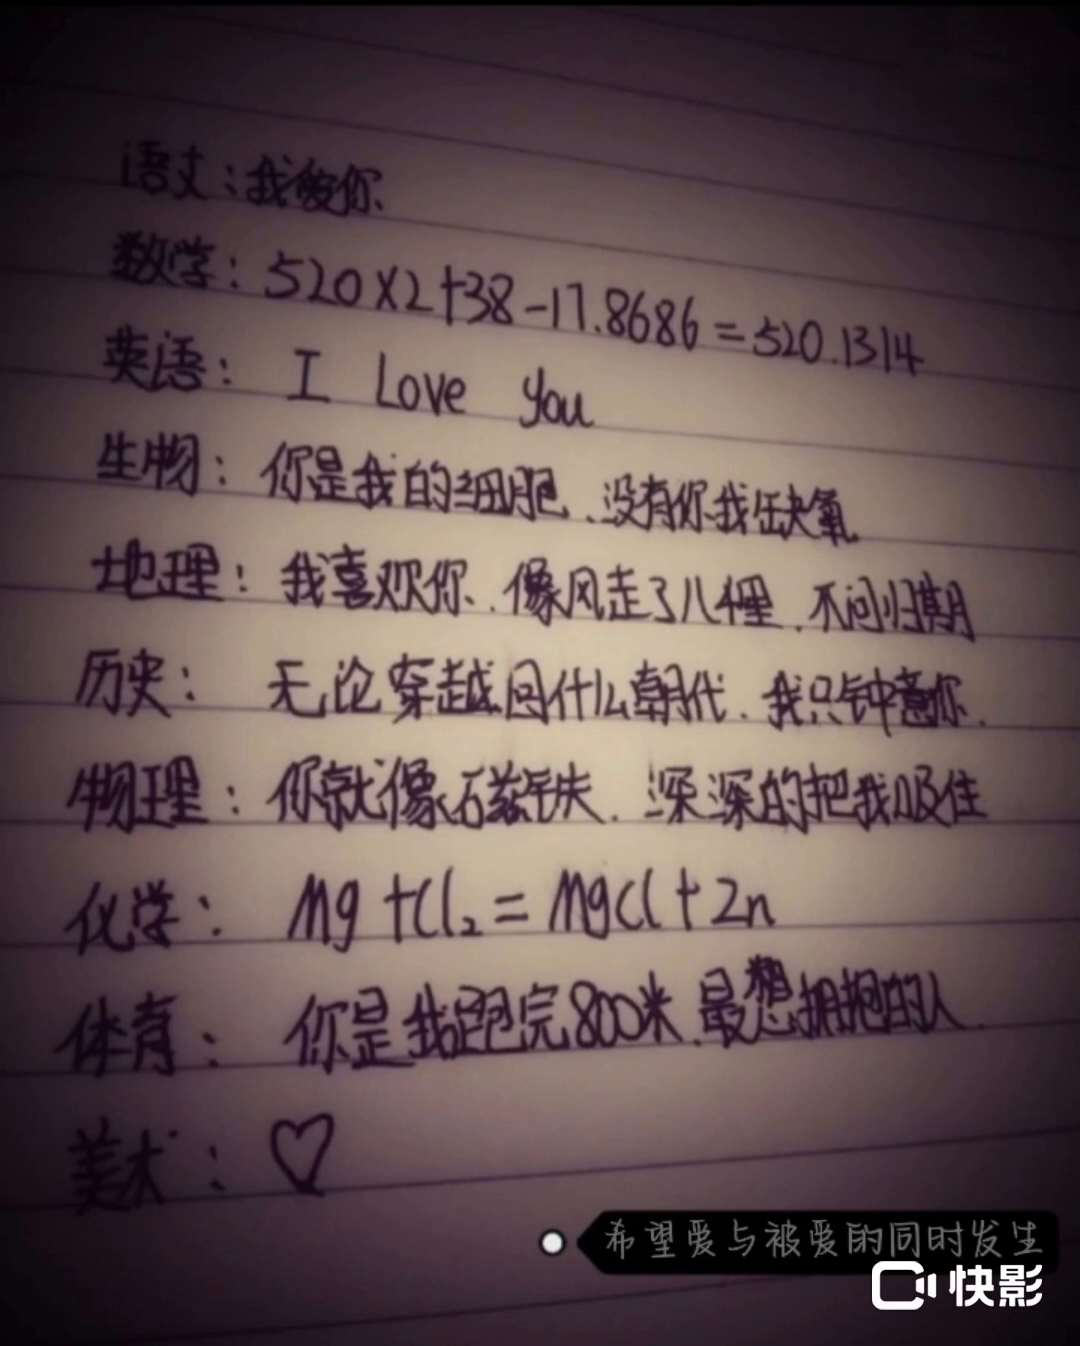 语文:我爱你
数学:520×2+38-17.8686=520.1314
英语: I Love you
生物:你是我的细胞、没有你我缺氧
地理:我喜欢你、像风走了八千里、不问归期
历史: 无论穿越回什么朝代、我只钟意你.
物理:你就像磁铁、深深的把我吸住
化学: Mg+Cl₂=MgCl+2n
体育: 你是我跑完800米、最想拥抱的人.
美术:♡
希望爱与被爱的同时发生
快影